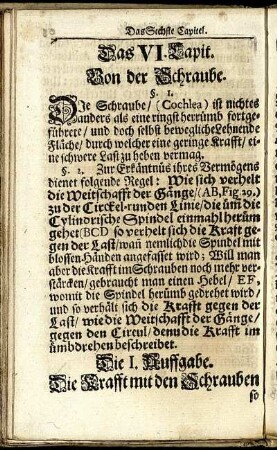 Das Sechste Capitel.
Das VI. Capit.
Von der Schraube.
§. 1.
Die Schraube / (Cochlea) ist nichtes
anders als eine ringst herrümb fortge-
führete / und doch selbst bewegliche Lehnende
Fläche / durch welcher eine geringe Krafft / ei-
ne schwere Last zu heben vermag.
§. 2. Zur Erkäntnüs ihres Vermögens
dienet folgende Regel: Wie sich verhelt
die Weitschafft der Gänge / (AB, Fig. 29.)
zu der Circkel-runden Linie / die üm die
Cylindrische Spindel einmahl herüm
gehet (BCD so verhelt sich die Kraft ge-
gen der Last / wañ nemlich die Spindel mit
blossen Händen angefasset wird; Will man
aber die Krafft im Schrauben noch mehr ver-
stärcken / gebraucht man einen Hebel / EF,
womit die Spindel herümb gedrehet wird /
und so verhält sich die Krafft gegen der
Last / wie die Weitschafft der Gänge /
gegen den Circul / denn die Krafft im
ümbdrehen beschreibet.
Die I. Auffgabe.
Die Krafft mit den Schrauben
so